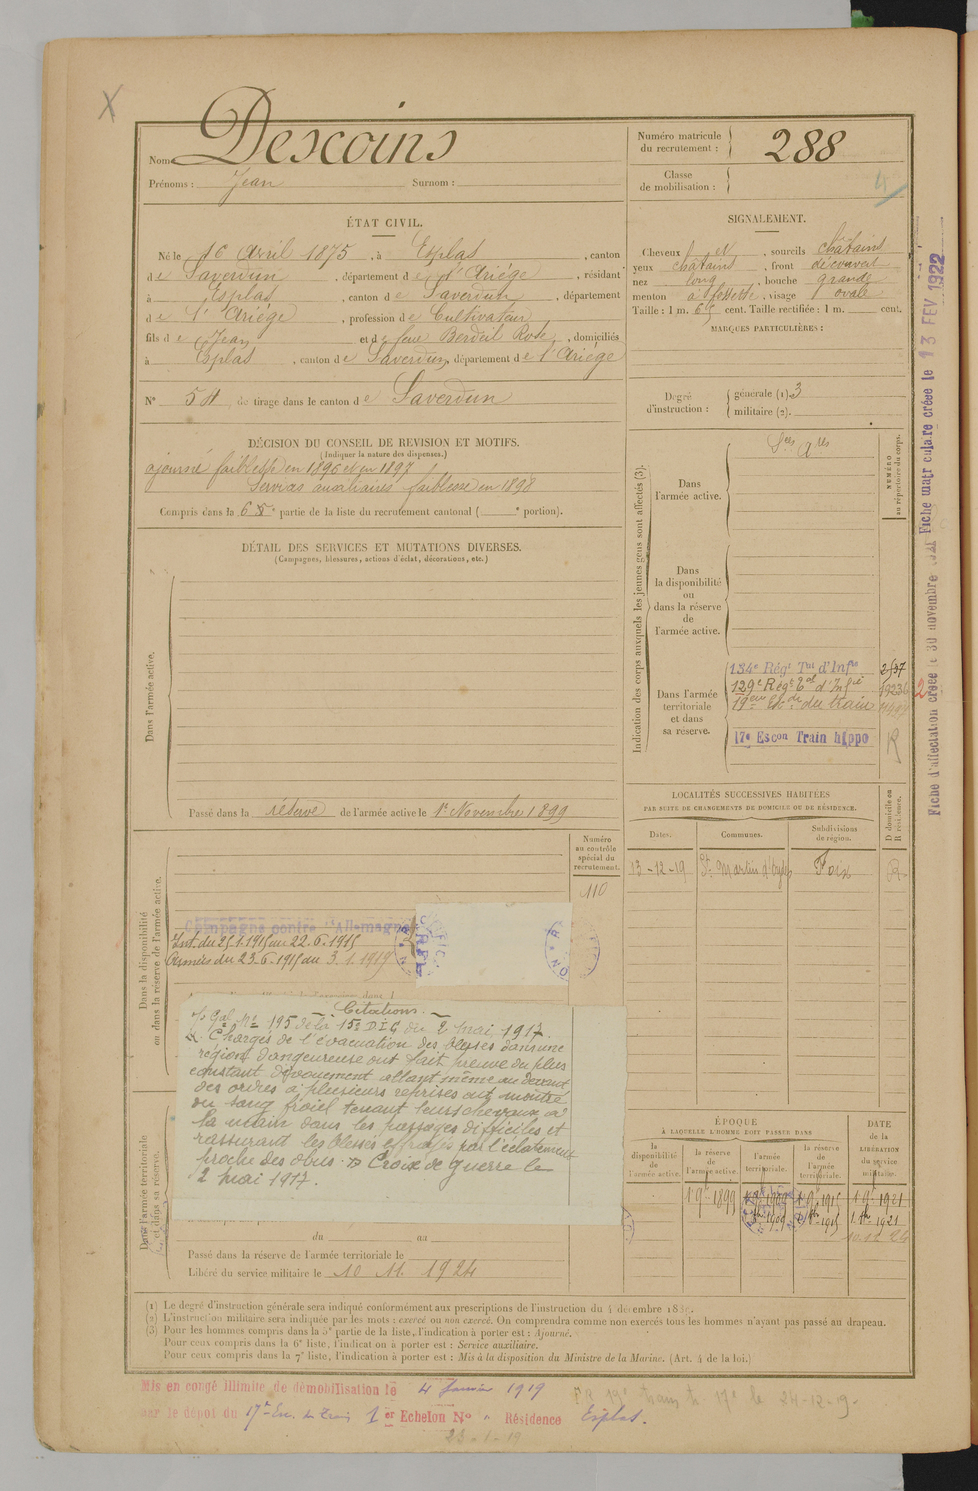 X
Nom : Descoins
Prénoms : Jean Surnom :
Numéro matricule
du recrutement : 288
Classe
de mobilisation :
4
ÉTAT CIVIL.
Né le 10 Avril 1875, à Esplas, canton
de Saverdun, département de l'Ariège, résidant
à Esplas, canton de Saverdun, département
de l'Ariège, profession de Cultivateur
fils de Jean et de feue Berdeil Rose, domiciliés
à Esplas, canton de Saverdun, département de l'Ariège
N° 54 de tirage dans le canton de Saverdun
SIGNALEMENT.
Cheveux et, sourcils châtains
yeux châtains, front découvert
nez long, bouche grande
menton à fossette, visage ovale
Taille : 1 m. 65 cent. Taille rectifiée : 1 m. cent.
MARQUES PARTICULIÈRES :
Degré
d'instruction :
générale (1). 3
militaire (2).
DÉCISION DU CONSEIL DE REVISION ET MOTIFS.
(Indiquer la nature des dispenses.)
ajourné faiblesse en 1896 et en 1897
Services auxiliaires faiblesse en 1898
Compris dans la 6e partie de la liste du recrutement cantonal ( e portion).
DÉTAIL DES SERVICES ET MUTATIONS DIVERSES.
(Campagnes, blessures, actions d'éclat, décorations, etc.)
Dans l'armée active.
Passé dans la réserve de l'armée active le 1er Novembre 1899
Indication des corps auxquels les jeunes gens sont affectés (3).
NUMÉRO
au répertoire du corps.
Dans
l'armée active.
Ses Ares
Dans
la disponibilité
ou
dans la réserve
de
l'armée active.
Dans l'armée
territoriale
et dans
sa réserve.
134e Régt Tal d'Infie
129e Régt Tal d'Infie
19eme Eson du train
17e Escon Train hippo
R
LOCALITÉS SUCCESSIVES HABITÉES
PAR SUITE DE CHANGEMENTS DE DOMICILE OU DE RÉSIDENCE.
Dates. Communes. Subdivisions
de région.
D domicile ou
R résidence.
13-12-19 St Martin d'Oydes Foix R
Dans la disponibilité
ou dans la réserve de l'armée active.
Numéro
au contrôle
spécial du
recrutement.
110
Campagne contre l'Allemagne
Int. du 25.1.1915 au 22.6.1915
Armées du 23.6.1915 au 3.1.1919
Citations.
195 de la 15e D.I.C du 2 mai 1917.
Chargés de l'évacuation des blessés dans une
région dangereuse ont fait preuve du plus
constant dévouement allant même au devant
des ordres à plusieurs reprises ont montré
du sang froid tenant leurs chevaux à
la main dans les passages difficiles et
rassurant les blessés effrayés par l'éclatement
proche des obus. Croix de guerre le
2 mai 1917.
Dans l'armée territoriale
et dans sa réserve.
du au
Passé dans la réserve de l'armée territoriale le
Libéré du service militaire le 10 11. 1924
ÉPOQUE
À LAQUELLE L'HOMME DOIT PASSER DANS
la
disponibilité
de
l'armée active.
la réserve
de
l'armée active.
l'armée
territoriale.
la réserve
de
l'armée
territoriale.
DATE
de la
LIBÉRATION
du service
militaire.
1899 1909 1915 1921
1909 1915 1921
(1) Le degré d'instruction générale sera indiqué conformément aux prescriptions de l'instruction du 4 décembre
(2) L'instruction militaire sera indiquée par les mots : exercé ou non exercé. On comprendra comme non exercés tous les hommes n'ayant pas passé au drapeau.
(3) Pour les hommes compris dans la 5e partie de la liste, l'indication à porter est : Ajourné.
Pour ceux compris dans la 6e liste, l'indication à porter est : Service auxiliaire.
Pour ceux compris dans la 7e liste, l'indication à porter est : Mis à la disposition du Ministre de la Marine. (Art. 4 de la loi.)
Mis en congé illimité de démobilisation le 4 Janvier 1919
par le dépôt du 17e Esc. du Train 1er Echelon N° " Résidence Esplas.
23-1-19
Fiche d'affectation créée le 30 novembre
Fiche matriculaire créée le 13 FEV 1922